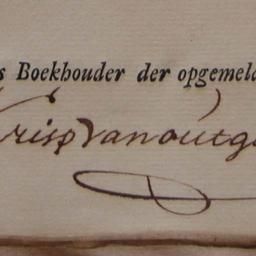 s Boekhouder der opgemeld
Crisp van outg